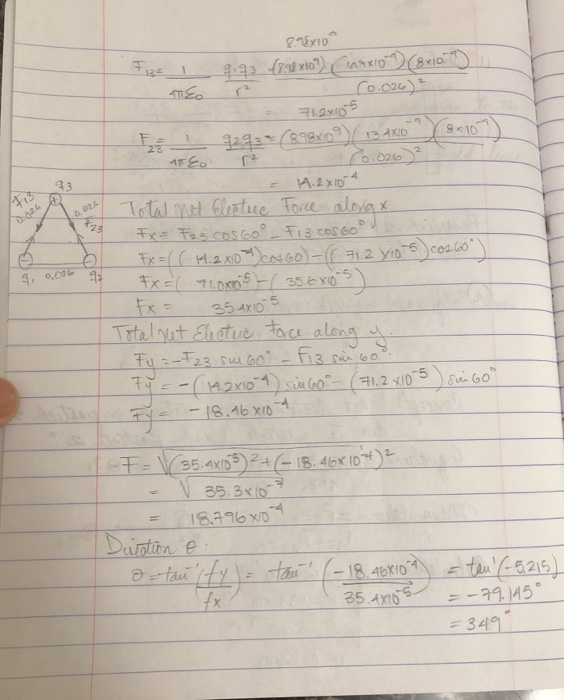 8.98x10⁹
F₁₃ = 1/4πε₀ q₁q₃/r² (8.98x10⁹)(6.7x10⁻⁹)(8x10⁻⁹)/(0.026)²
= 71.2x10⁻⁵
F₂₃ = 1/4πε₀ q₂q₃/r² = (8.98x10⁹)(13.4x10⁻⁹)(8x10⁻⁹)/(0.026)²
= 14.2x10⁻⁴
q₃
F₁₃ 0.026 0.026 F₂₃
q₁ 0.026 q₂
Total net Electric Force along x
Fx = F₂₃ cos60° - F₁₃ cos60°
Fx = ((14.2x10⁻⁴)cos60) - ((71.2x10⁻⁵)cos60°)
Fx = (71.0x10⁻⁵) - (35.6x10⁻⁵)
Fx = 35.4x10⁻⁵
Total net Electric Force along y.
Fy = -F₂₃ sin60° - F₁₃ sin60°.
Fy = -(14.2x10⁻⁴) sin60° - (71.2x10⁻⁵) sin60°
Fy = -18.46x10⁻⁴
F = √(35.4x10⁻⁵)² + (-18.46x10⁻⁴)²
= √35.3x10⁻⁷
= 18.796x10⁻⁴
Direction θ.
θ = tan⁻¹(fy/fx) = tan⁻¹(-18.46x10⁻⁴/35.4x10⁻⁵) = tan⁻¹(-5.215)
= -79.145°
= 349°